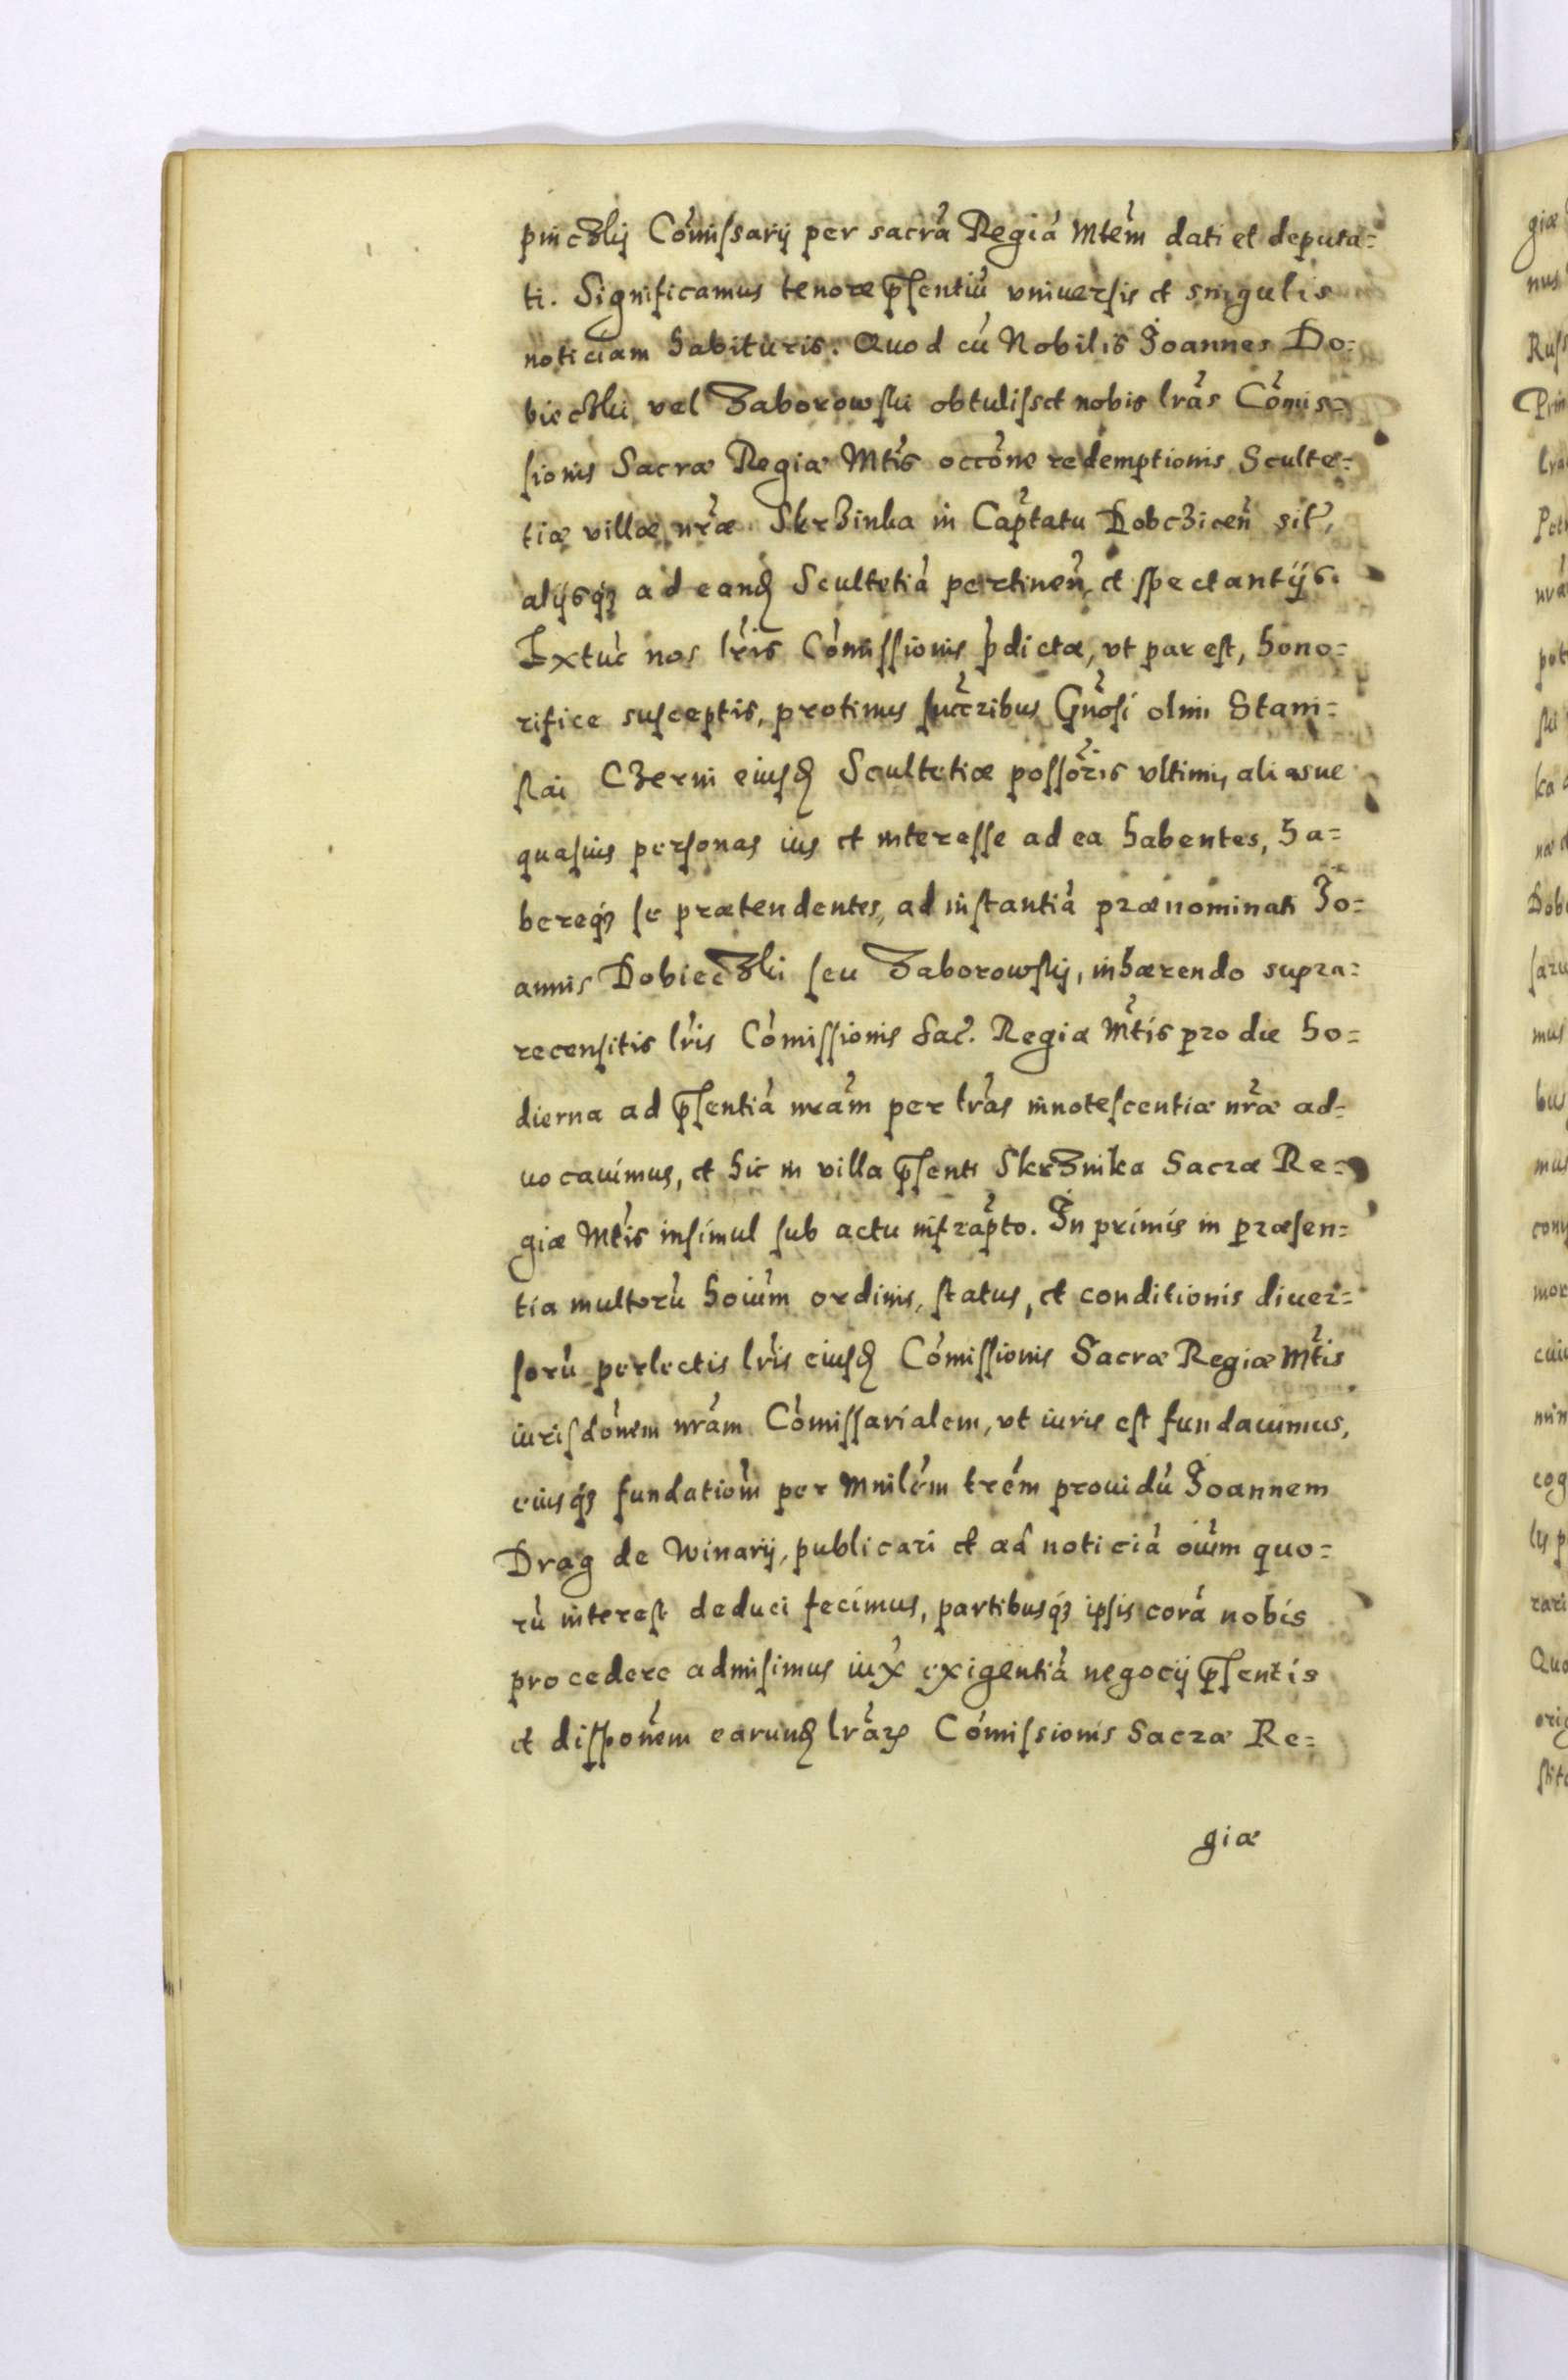 pinczkij Cómissarij per sacrã Regiã Mtẽm dati et deputa=
ti. Significamus tenore p̃sentiũ vniuersis et singulis
noticiam habituris. Quod cũ Nobilis Joannes Do=
bieczki vel Zaborowski obtulisset nobis lrãs Cõmis=
sionis Sacræ Regiæ Mtĩs occõne redemptionis Sculte=
tiæ villæ nrãe Skrzinka in Capt̃atu Dobczicen̄ sit̃,
alijsq́ȝ ad eand̨ Scultetiã pertinen̄ et spectantijs.
Extũc nos lrĩs Cõmissionis p̃dictæ, vt par est, hono=
rifice susceptis, protinus succr̃ibus Gñosi olim Stani=
slai Czerni eiusd̨ Scultetiæ possõris vltimi, aliasue
quasuis personas ius et interesse ad ea habentes, ha=
bereq́ȝ se prætendentes, ad instantiã prænominati Jo=
annis Dobieczki seu Zaborowskij, inhærendo supra=
recensitis lrĩs Cõmissionis Sac̃. Regiæ Mt̃is pro die ho=
dierna ad p̃sentiã nrãm per lrãs innotescentiæ nrãe ad=
uocauimus, et hic in villa p̃senti Skrzinka Sacræ Re=
giæ Mtĩs insimul sub actu infrapt̃o. In primis in præsen=
tia multorũ hoiũm ordinis, status, et conditionis diuer=
sorũ perlectis lrĩs eiusd̨ Cõmissionis Sacræ Regiæ Mt̃is
iurisdõnem nrãm Cõmissarialem, vt iuris est fundauimus,
eiusq́ȝ fundatiom̃ per Mnilẽm trẽm prouidũ Joannem
Drag de Winarij, publicari et ad noticiã oiũm quo=
rũ interest deduci fecimus, partibusq́ȝ ipsis corã nobis
procedere admisimus iux̃ exigentiã negocij p̃sentis
et dispõnem earund̨ lrãrꝝ Cõmissionis Sacræ Re=
giæ